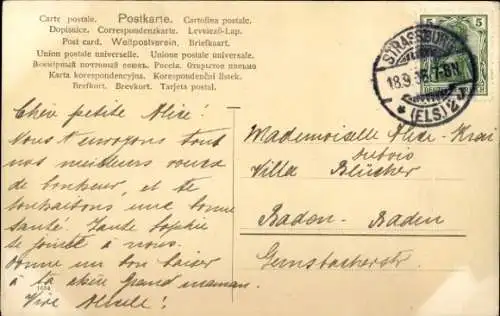 Carte postale. Postkarte. Cartolina postale.
Dopisnice. Correspondenzkarte. Levelező-Lap.
Post card. Weltpostverein. Briefkaart.
Union postale universelle. Unione postale universale.
Всемирный почтовый союзъ. Россія. Открытое письмо
Karta korespondencyjna. Korespondenční lístek.
Brefkort. Brevkort. Tarjeta postal.
5 5
DEUTSCHES REICH
STRASSBURG
18.9. 7-8N
* (ELS.) 2
Chère petite Alice!
Nous t'envoyons tous
nos meilleurs voeux
de bonheur, et te
souhaitons une bonne
santé. Tante Sophie
se joint à nous.
Donne un bon baiser
à ta chère Grand'maman.
Vive
Mademoiselle Alice
Villa Blücher
Baden-Baden
Gernsbacherstr.